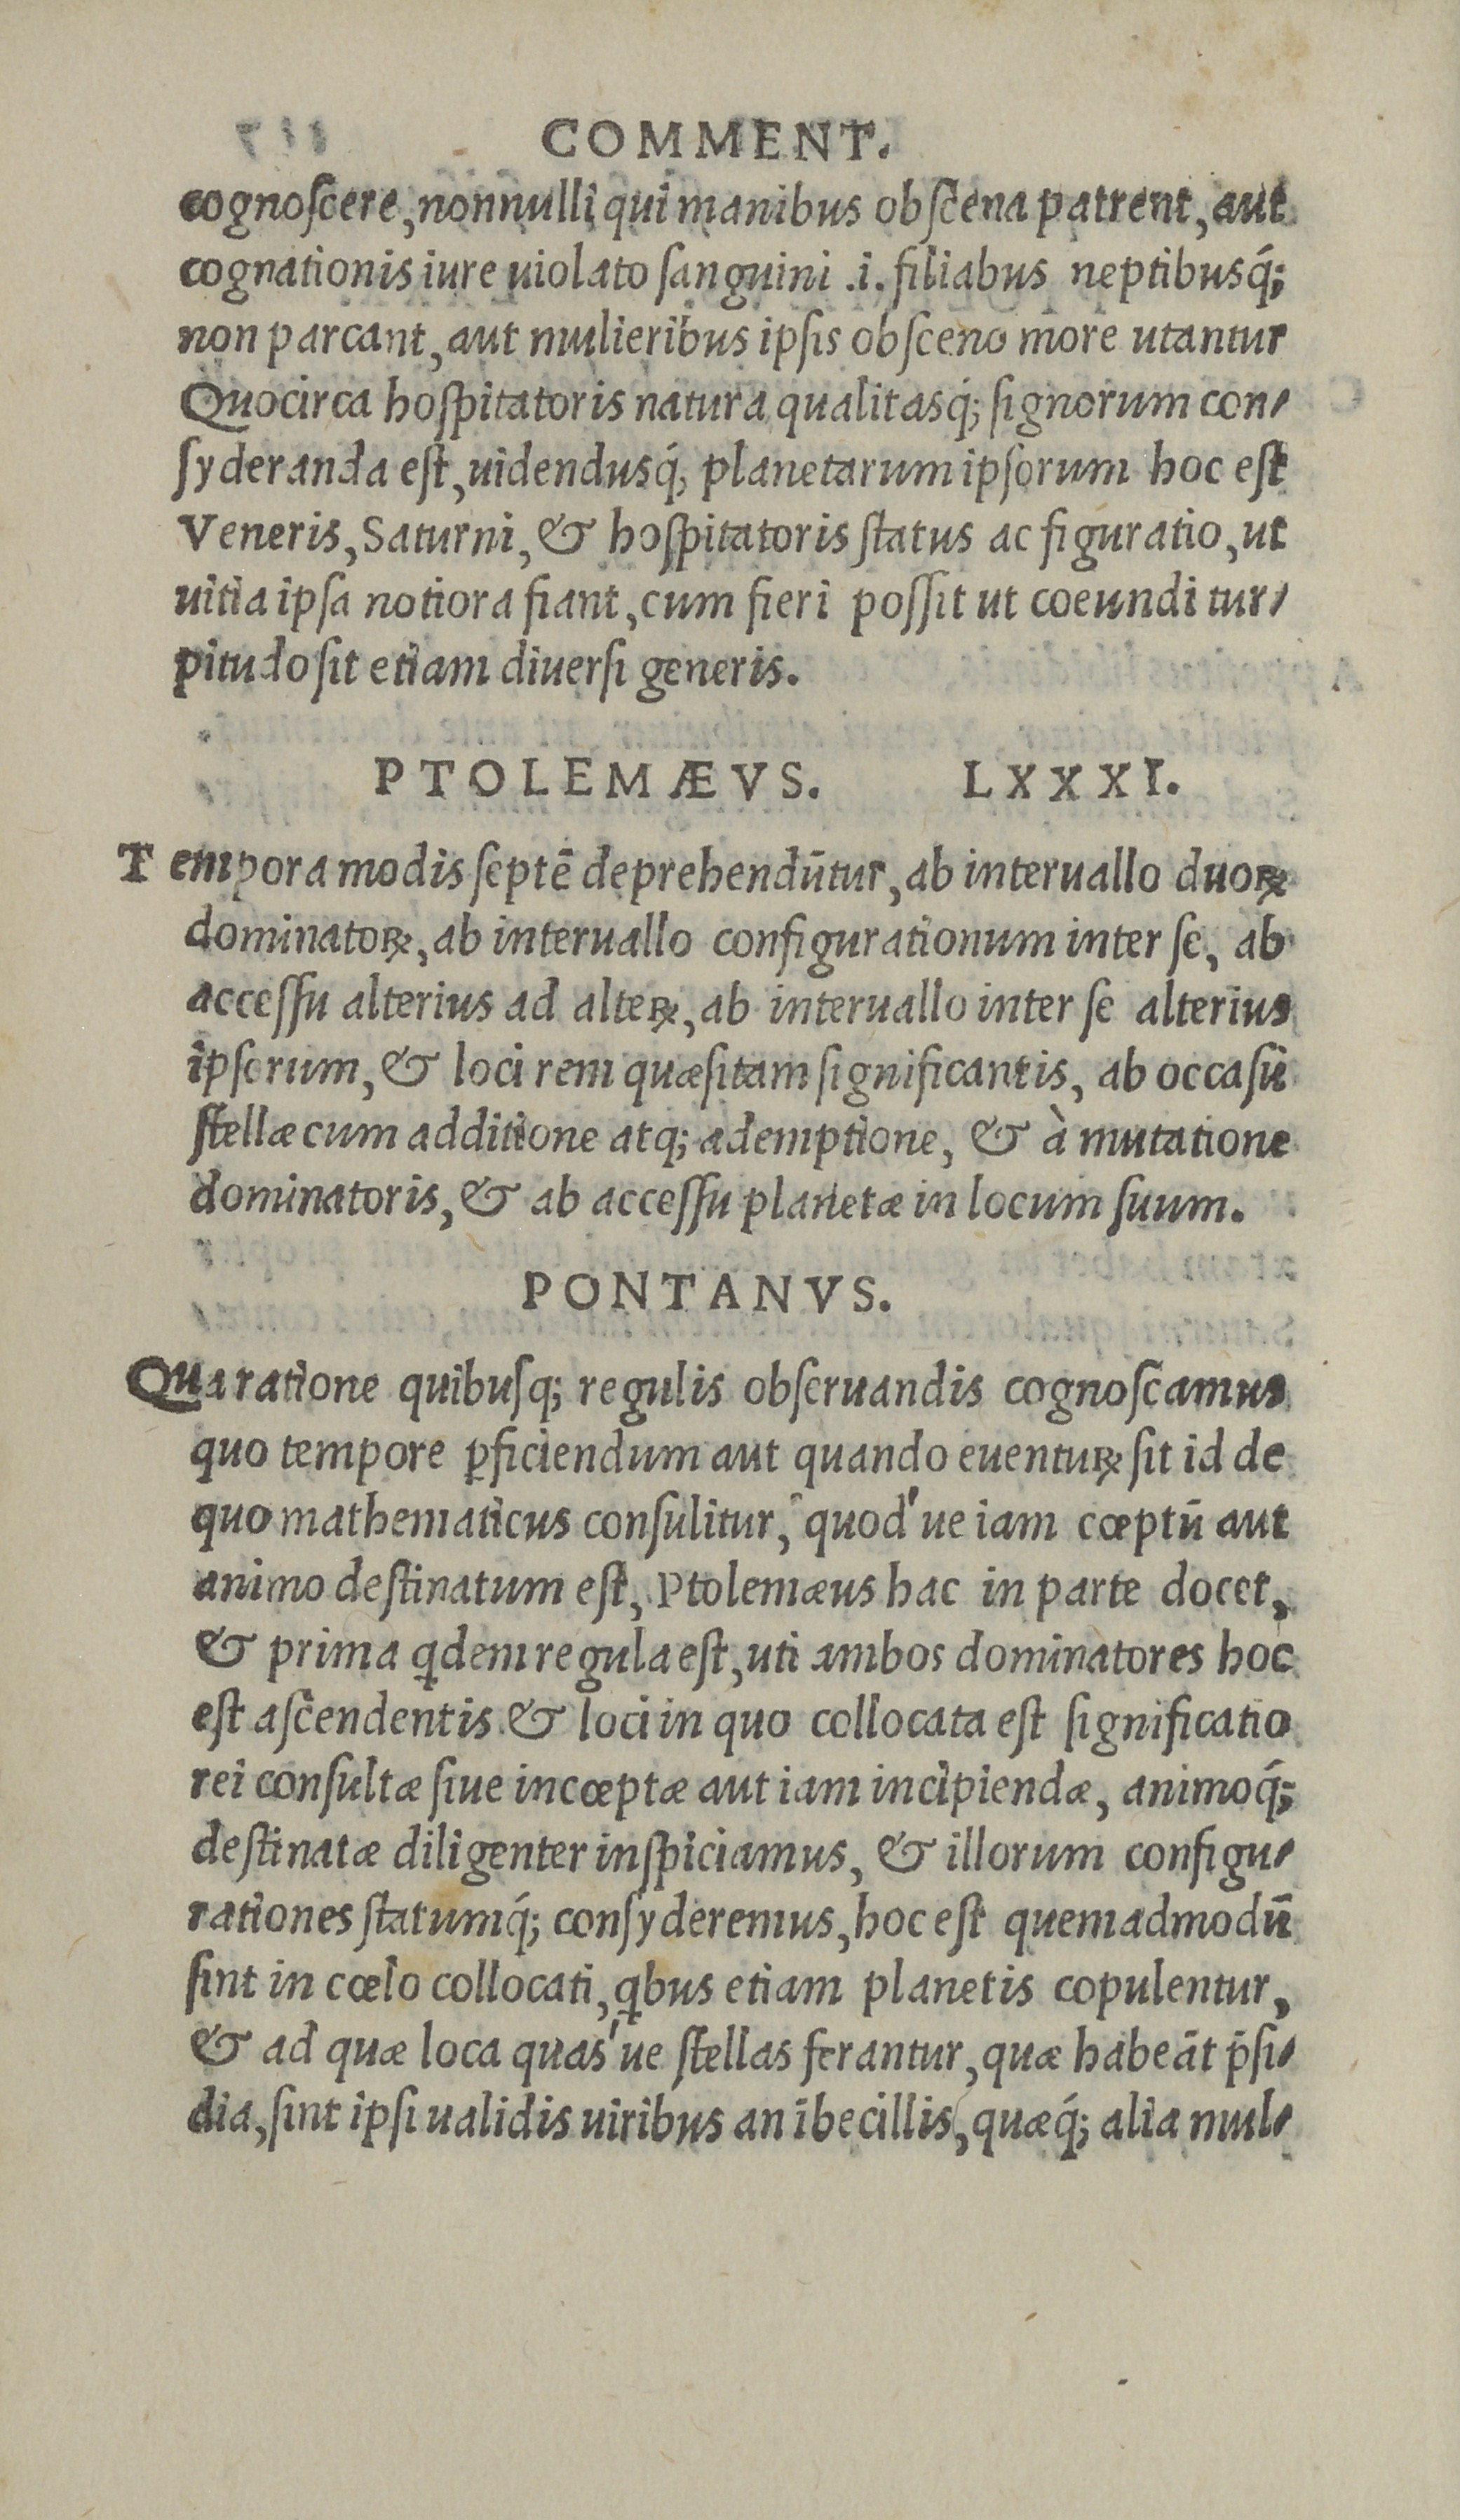 COMMENT.
cognoſcere, nonnulli qui manibus obſcena patrent, aut
cognationis iure uiolato ſanguini .i. filiabus neptibusq́;
non parcant, aut mulieribus ipſis obſceno more utantur
Quocirca hoſpitatoris natura qualitasq́; ſignorum con-
ſyderanda eſt, uidendusq́; planetarum ipſorum hoc eſt
Veneris, Saturni, & hoſpitatoris ſtatus ac figuratio, ut
uitia ipſa notiora fiant, cum fieri poſſit ut coeundi tur-
pitudo ſit etiam diuerſi generis.
PTOLEMÆVS. LXXXI.
Tempora modis ſeptē deprehendūtur, ab interuallo duoꝝ
dominatoꝝ, ab interuallo configurationum inter ſe, ab
acceſſu alterius ad alteꝝ, ab interuallo inter ſe alterius
ipſorum, & loci rem quæſitam ſignificantis, ab occaſu
ſtellæ cum additione atq; ademptione, & à mutatione
dominatoris, & ab acceſſu planetæ in locum ſuum.
PONTANVS.
Qua ratione quibuſq; regulis obſeruandis cognoſcamus
quo tempore ꝑficiendum aut quando euentuꝝ ſit id de
quo mathematicus conſulitur, quod'ue iam cœptū aut
animo deſtinatum eſt, Ptolemæus hac in parte docet,
& prima ꝗdem regula eſt, uti ambos dominatores hoc
eſt aſcendentis & loci in quo collocata eſt ſignificatio
rei conſultæ ſiue incœptæ aut iam incipiendæ, animoq́;
deſtinatæ diligenter inſpiciamus, & illorum configu-
rationes ſtatumq́; conſyderemus, hoc eſt quemadmodū
ſint in cœlo collocati, ꝗbus etiam planetis copulentur,
& ad quæ loca quas'ue ſtellas ferantur, quæ habeāt p̄ſi-
dia, ſint ipſi ualidis uiribus an ībecillis, quæq́; alia mul-